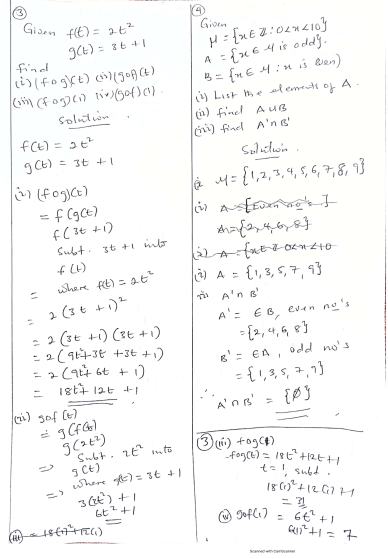 ③
Given f(t) = 2t²
g(t) = 3t + 1
find
(i) (fog)(t) (ii) (gof)(t)
(iii) (fog)(1) (iv) (gof)(1).
Solution.
f(t) = 2t²
g(t) = 3t + 1
(i) (fog)(t)
= f(g(t)
f(3t + 1)
Subt. 3t + 1 into
f(t)
= where f(t) = 2t²
= 2(3t + 1)²
= 2(3t + 1)(3t + 1)
= 2(9t² + 3t + 3t + 1)
= 2(9t² + 6t + 1)
= 18t² + 12t + 1
(ii) gof(t)
= g(f(t)
g(2t²)
⇒ Subt. 2t² into
g(t)
⇒ where g(t) = 3t + 1
3(2t²) + 1
6t² + 1
(iii) = 18(1)² + 12(1)
④
Given
μ = {x ∈ Z : 0 < x < 10}
A = {x ∈ μ is odd}.
B = {x ∈ μ : x is Even}
(i) List the elements of A.
(ii) find A ∪ B
(iii) find A' ∩ B'
Solution.
μ = {1, 2, 3, 4, 5, 6, 7, 8, 9}
(i) A = {Even no's}
A = {2, 4, 6, 8}
(i) A = {x ∈ Z 0 < x < 10
(i) A = {1, 3, 5, 7, 9}
A' ∩ B'
A' = ∈ B, even no's
= {2, 4, 6, 8}
B' = ∈ A, odd no's
= {1, 3, 5, 7, 9}
∴ A' ∩ B' = {∅}
③ (iii) fog(1)
fog(t) = 18t² + 12t + 1
t = 1, subt.
18(1)² + 12(1) + 1
= 31
(iv) gof(1) = 6t² + 1
6(1)² + 1 = 7
Scanned with CamScanner